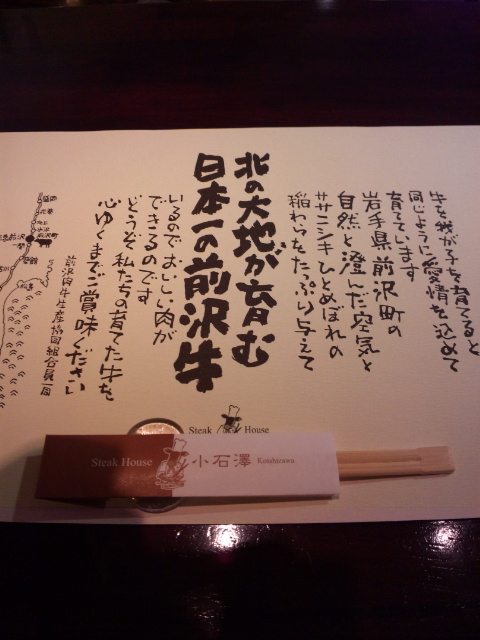 牛を我が子を育てると
同じように愛情を込めて
育てています
岩手県前沢町の
自然と澄んだ空気と
ササニシキひとめぼれの
稲わらをたっぷり与えて
北の大地が育む
日本一の前沢牛
いるのでおいしい肉が
できるのです
どうぞ私たちの育てた牛を
心ゆくまでご賞味ください
前沢肉牛生産協同組合員一同
盛岡
花巻
北上
水沢
前沢町
一関
Steak House
Steak House
小石澤
Kotahizawa